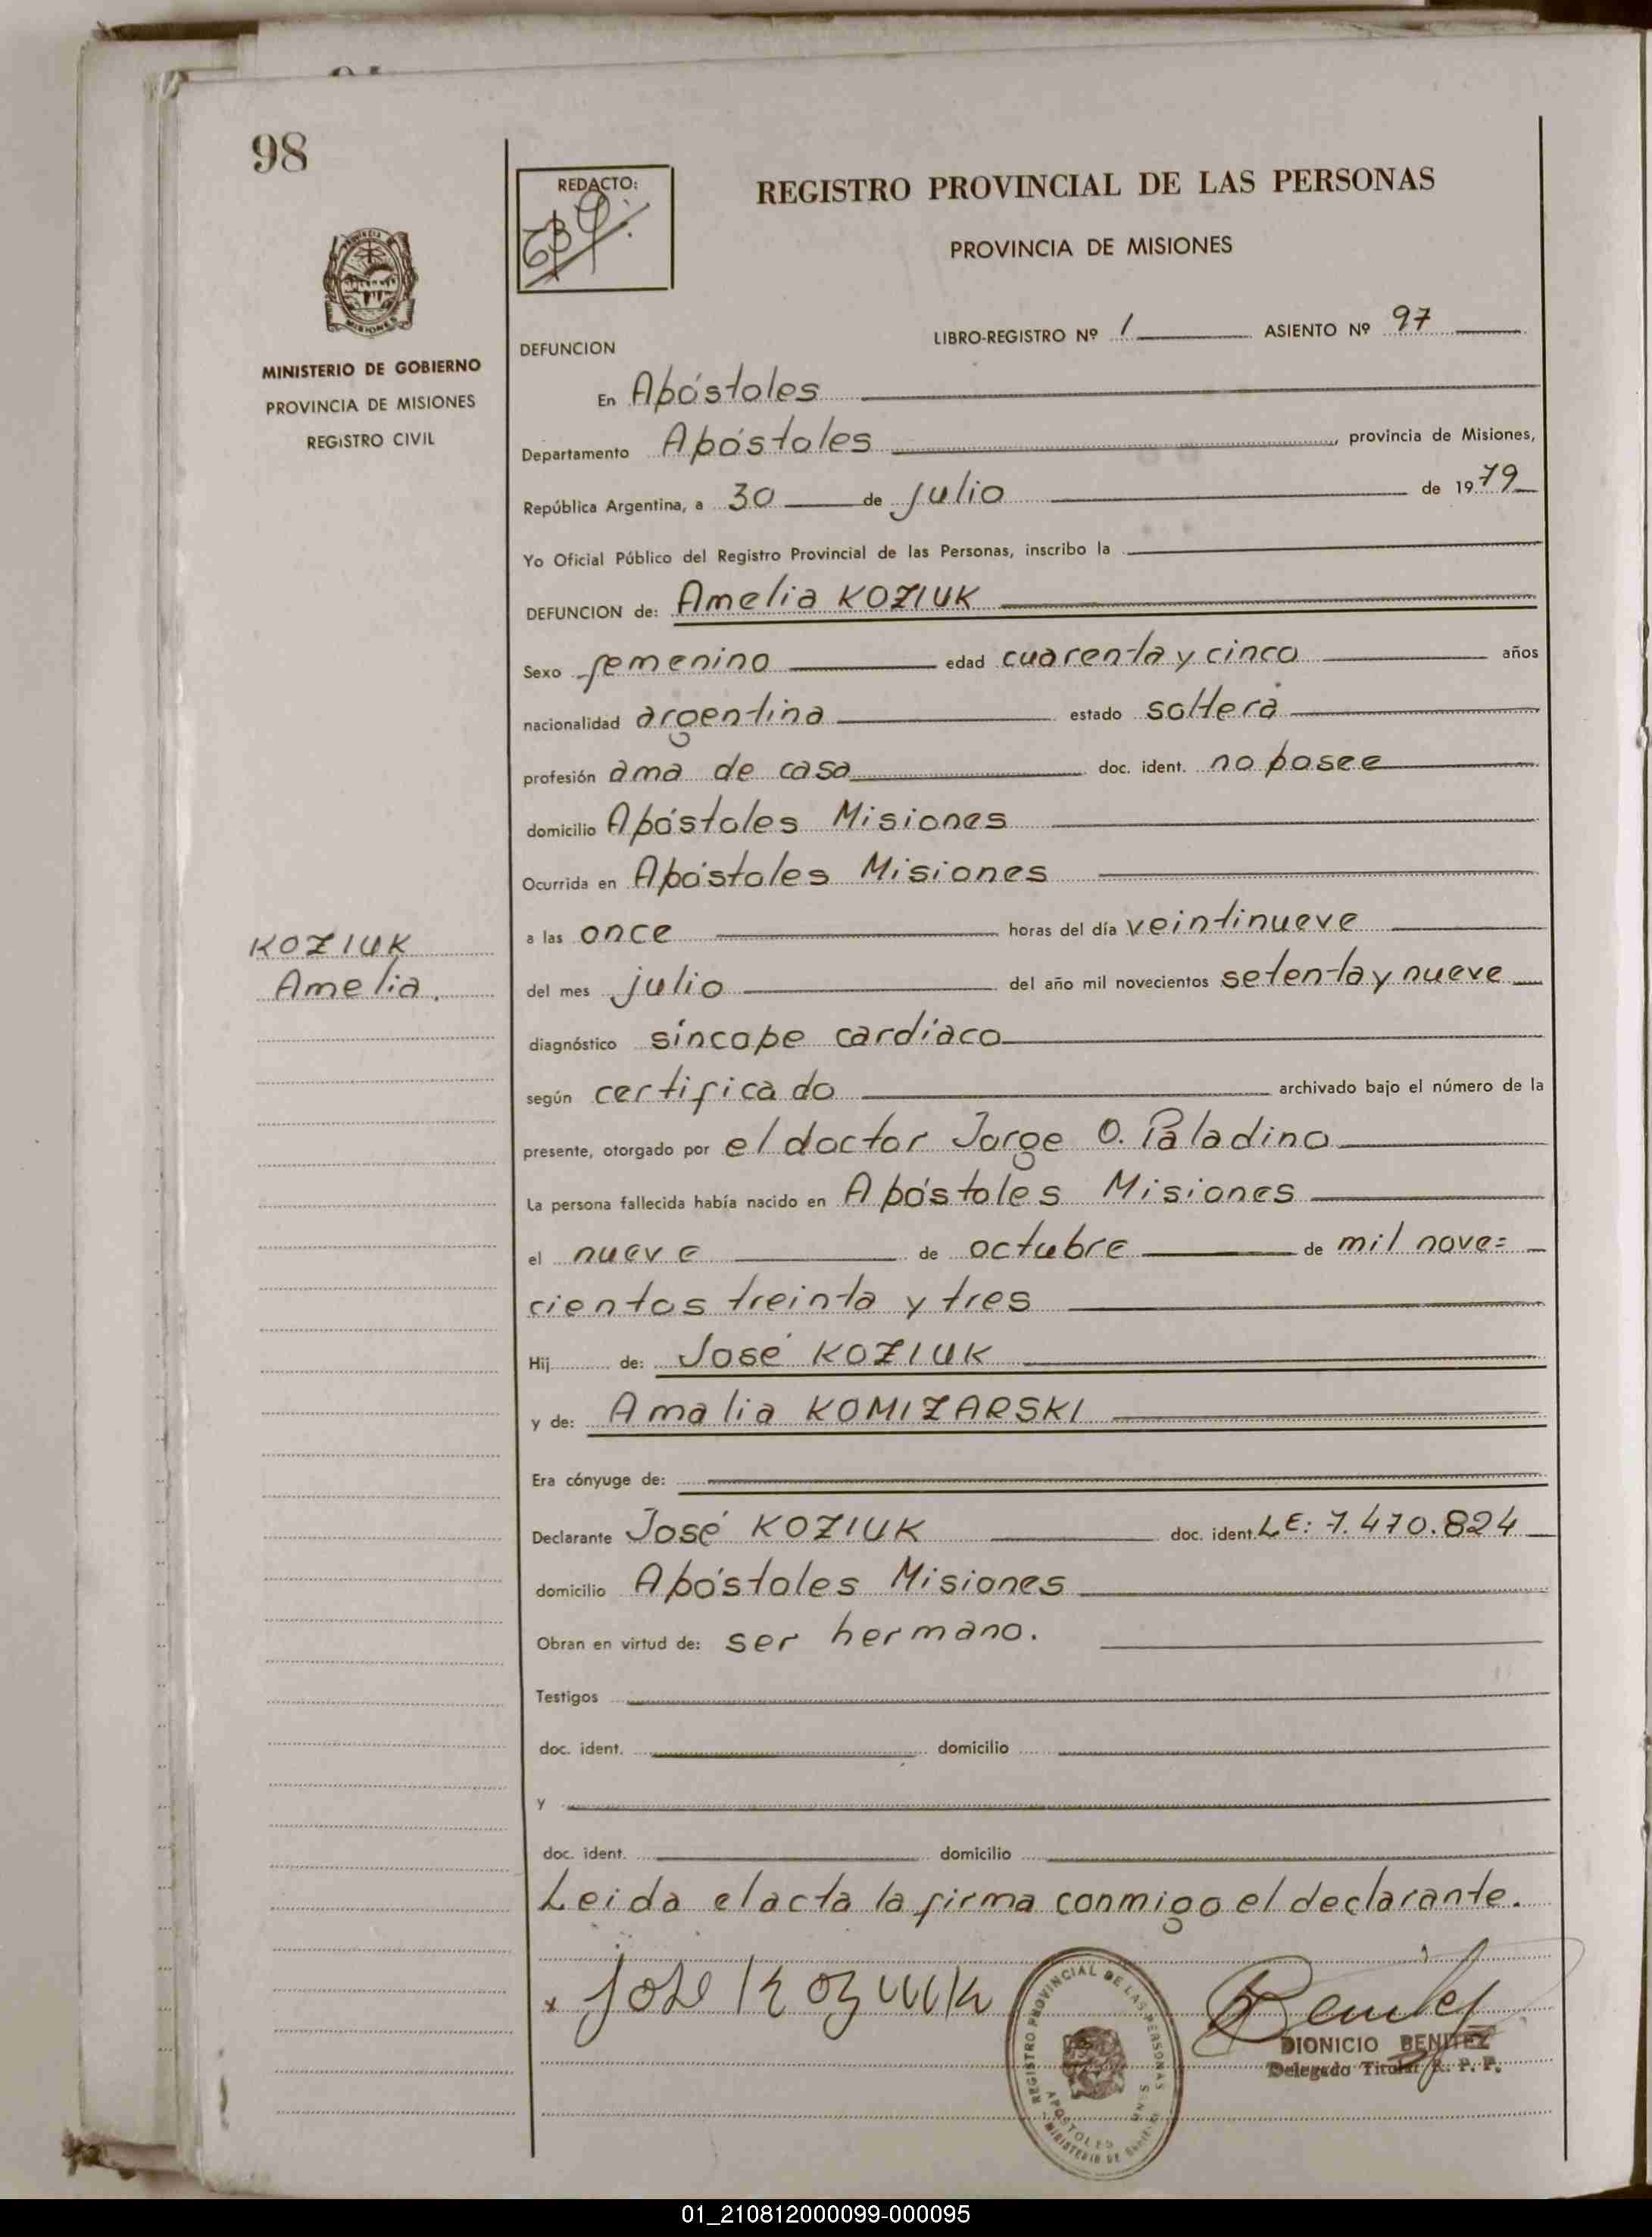 98
REDACTO:
REGISTRO PROVINCIAL DE LAS PERSONAS
PROVINCIA DE MISIONES
MISIONES
MINISTERIO DE GOBIERNO
PROVINCIA DE MISIONES
REGISTRO CIVIL
LIBRO-REGISTRO Nº 1 ASIENTO Nº 97
DEFUNCION
En Apóstoles
Departamento Apóstoles, provincia de Misiones,
República Argentina, a 30 de julio de 1979
Yo Oficial Público del Registro Provincial de las Personas, inscribo la
DEFUNCION de: Amelia KOZIUK
Sexo femenino edad cuarenta y cinco años
nacionalidad argentina estado soltera
profesión ama de casa doc. ident. no posee
domicilio Apóstoles Misiones
Ocurrida en Apóstoles Misiones
KOZIUK
Amelia.
a las once horas del día veintinueve
del mes julio del año mil novecientos setenta y nueve
diagnóstico síncope cardíaco
según certificado archivado bajo el número de la
presente, otorgado por el doctor Jorge O. Paladino
La persona fallecida había nacido en Apóstoles Misiones
el nueve de octubre de mil nove=
cientos treinta y tres
Hij de: José KOZIUK
y de: Amalia KOMIZARSKI
Era cónyuge de:
Declarante José KOZIUK doc. ident. LE: 7.470.824
domicilio Apóstoles Misiones
Obran en virtud de: ser hermano.
Testigos
doc. ident. domicilio
y
doc. ident. domicilio
Leida el acta la firma conmigo el declarante.
x José Koziuk
REGISTRO PROVINCIAL DE LAS PERSONAS
APOSTOLES
DIONICIO BENITEZ
Delegado Titular R. P. P.
01_210812000099-000095